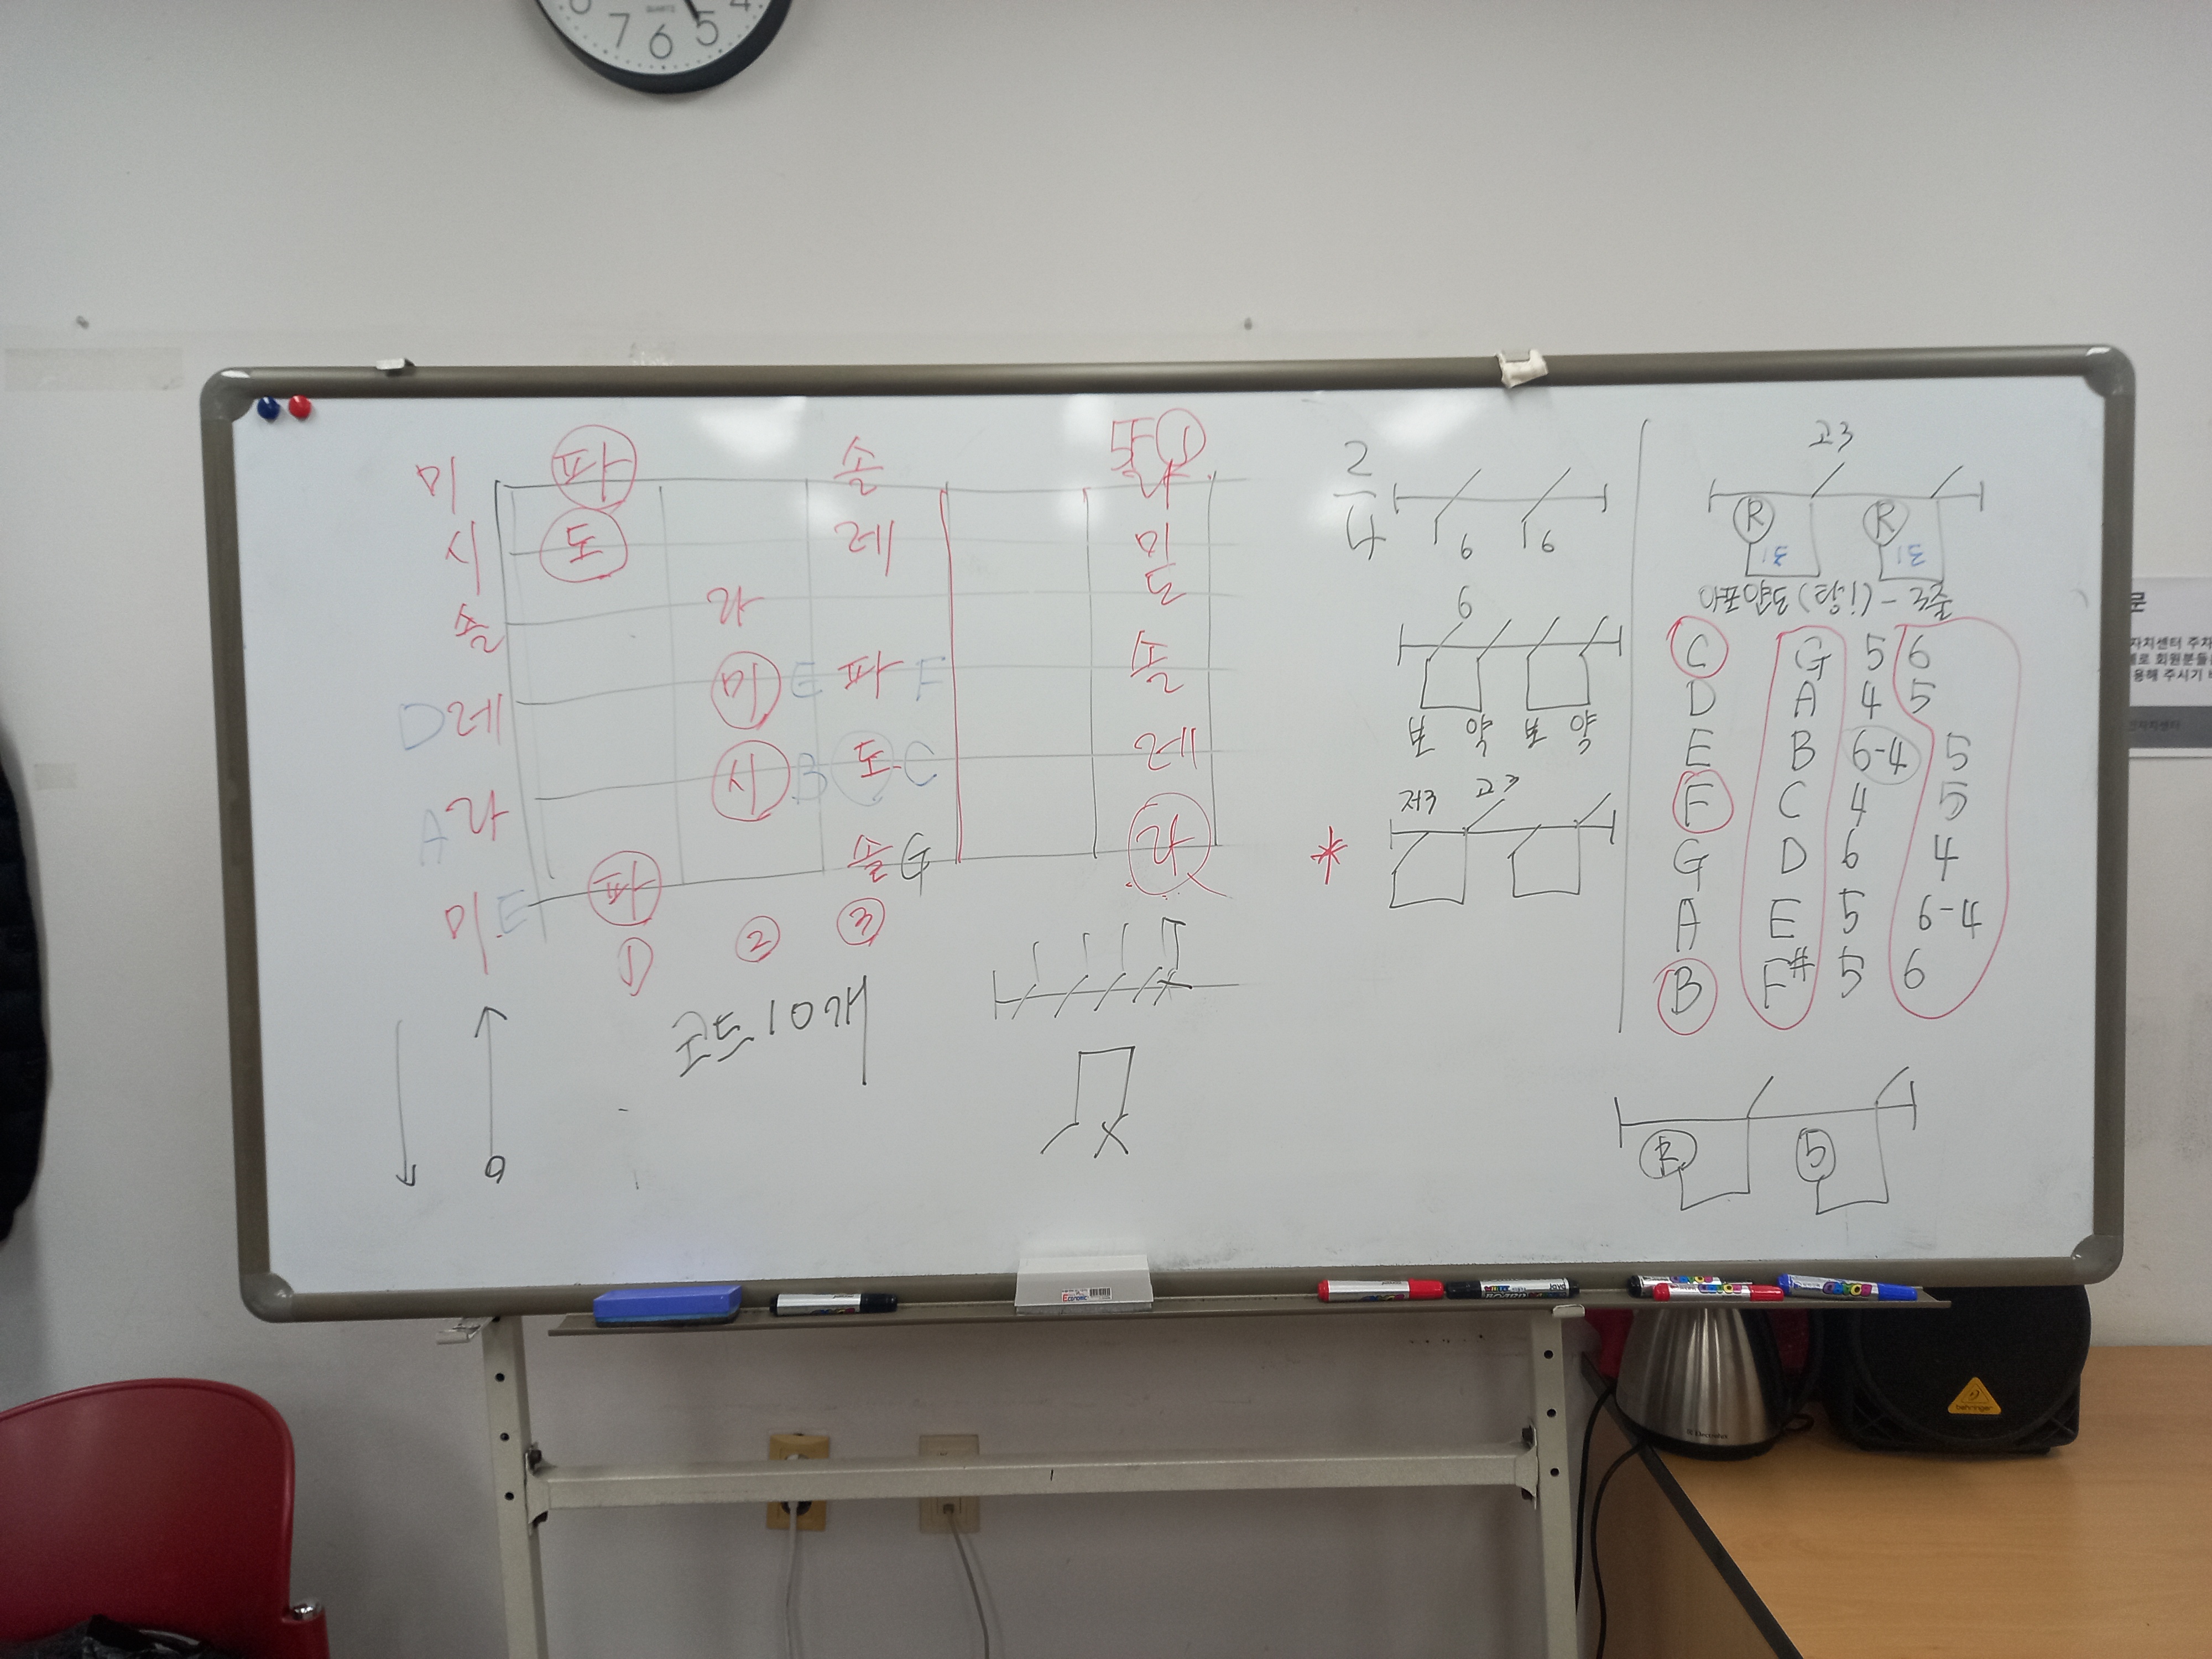 7 6 5 4
미 파 솔 5F ① 라
시 도 레 미
솔 라 도
D 레 미 E 파 F 솔
A 라 시 B 도 - C 레
미 E 파 솔 G 라
① ② ③
코드 10개
2/4
6 6
6
보 약 보 약
저3 고3
*
고3
R R
C G 5 6
D A 4 5
E B 6-4 5
F C 4 5
G D 6 4
A E 5 6-4
B F# 5 6
R 5
behringer